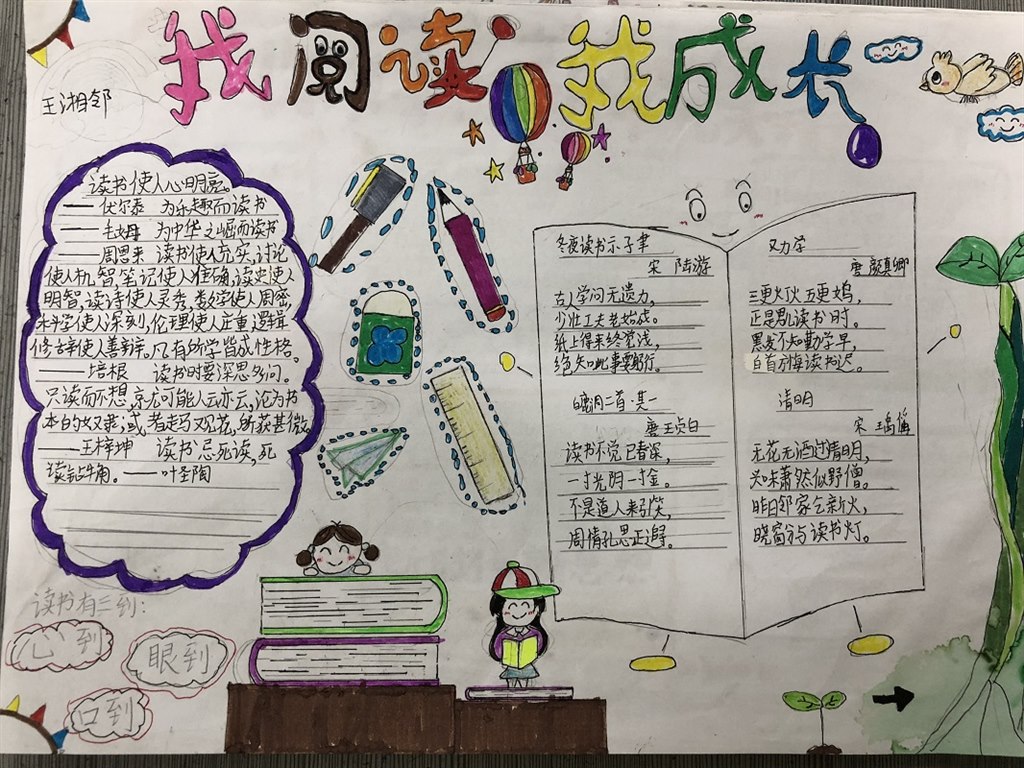 我阅读我成长
王湘邻
读书使人心明亮。
——伏尔泰 为乐趣而读书
——毛姆 为中华之崛而读书
——周恩来 读书使人充实,讨论
使人机智,笔记使人准确,读史使人
明智,读诗使人灵秀,数学使人周密,
科学使人深刻,伦理使人庄重,逻辑
修辞使人善辩。凡有所学皆成性格。
——培根 读书时要深思多问。
只读而不想,就可能人云亦云,沦为书
本的奴隶;或者走马观花,所获甚微
——王梓坤 读书忌死读,死
读钻牛角。——叶圣陶
读书有三到:
心到
眼到
口到
冬夜读书示子聿
宋 陆游
古人学问无遗力,
少壮工夫老始成。
纸上得来终觉浅,
绝知此事要躬行。
白鹿洞二首·其一
唐 王贞白
读书不觉已春深,
一寸光阴一寸金。
不是道人来引笑,
周情孔思正追寻。
又力学
唐 颜真卿
三更灯火五更鸡,
正是男儿读书时。
黑发不知勤学早,
白首方悔读书迟。
清明
宋 王禹偁
无花无酒过清明,
兴味萧然似野僧。
昨日邻家乞新火,
晓窗分与读书灯。